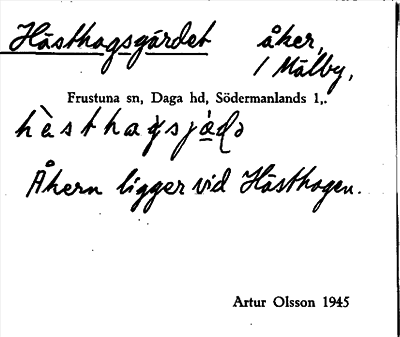 Hästhagsgärdet åker,
i Mälby,
Frustuna sn, Daga hd, Södermanlands l,.
Åkern ligger vid Hästhagen.
Artur Olsson 1945